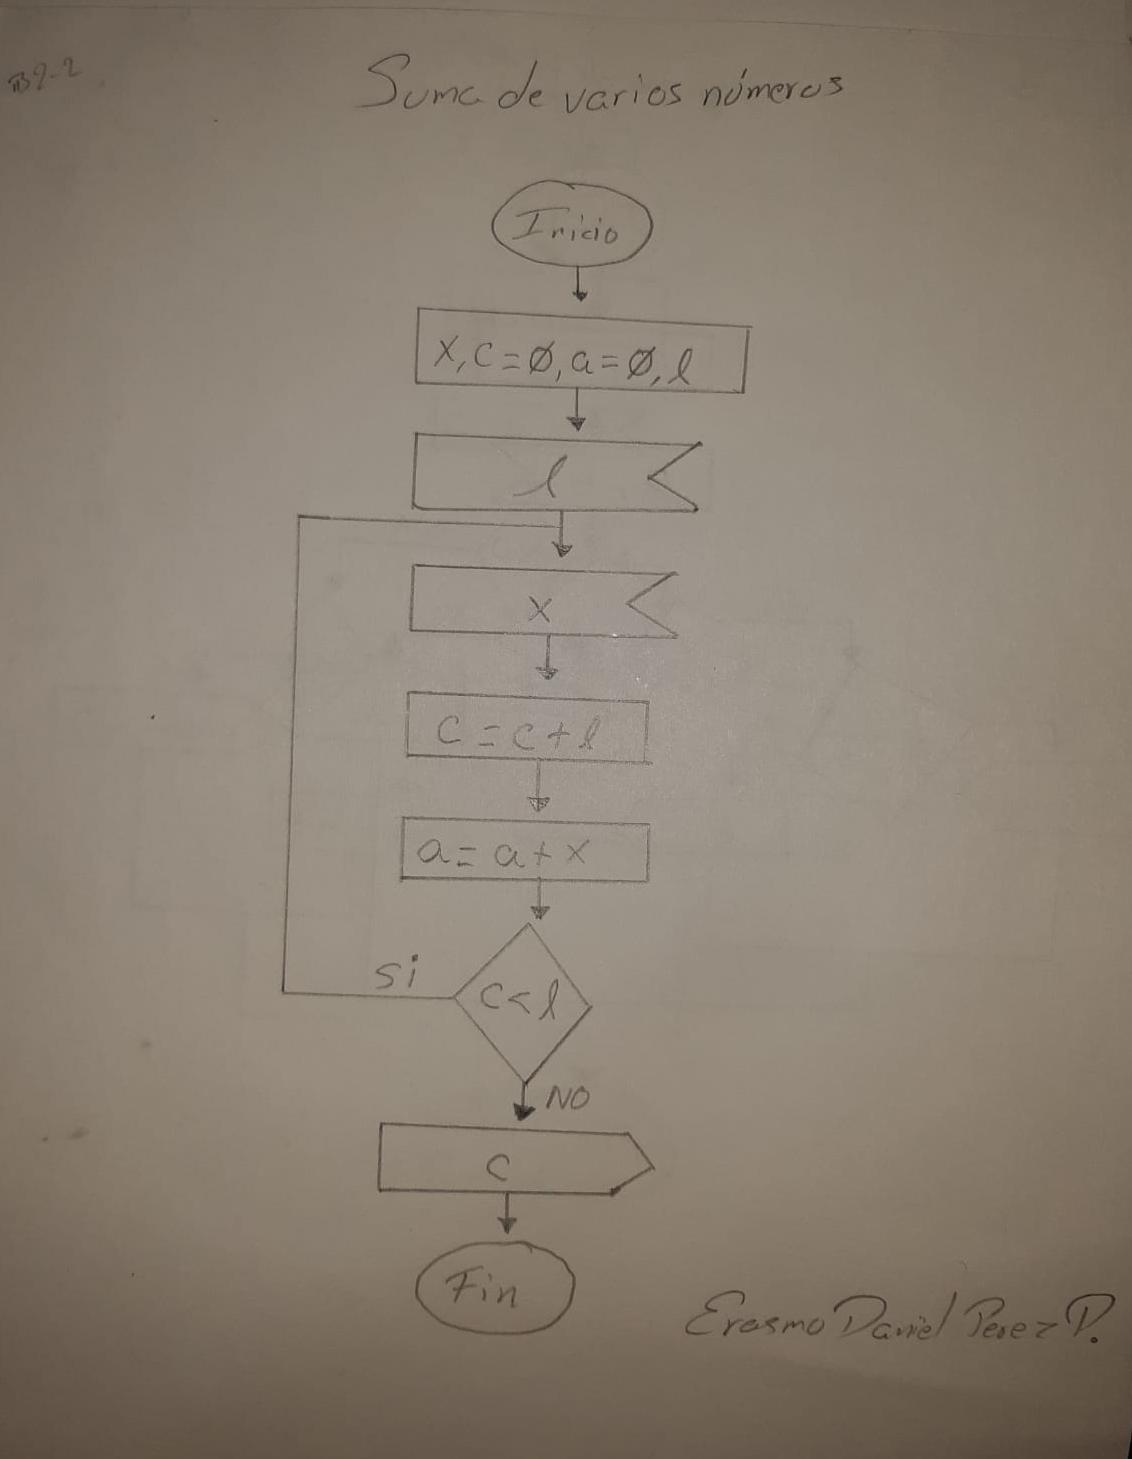 B2-2
Suma de varios números
Inicio
X, C=Ø, a=Ø, l
l
X
C = C + l
a = a + x
si
C < l
NO
C
Fin
Erasmo Daniel Perez P.